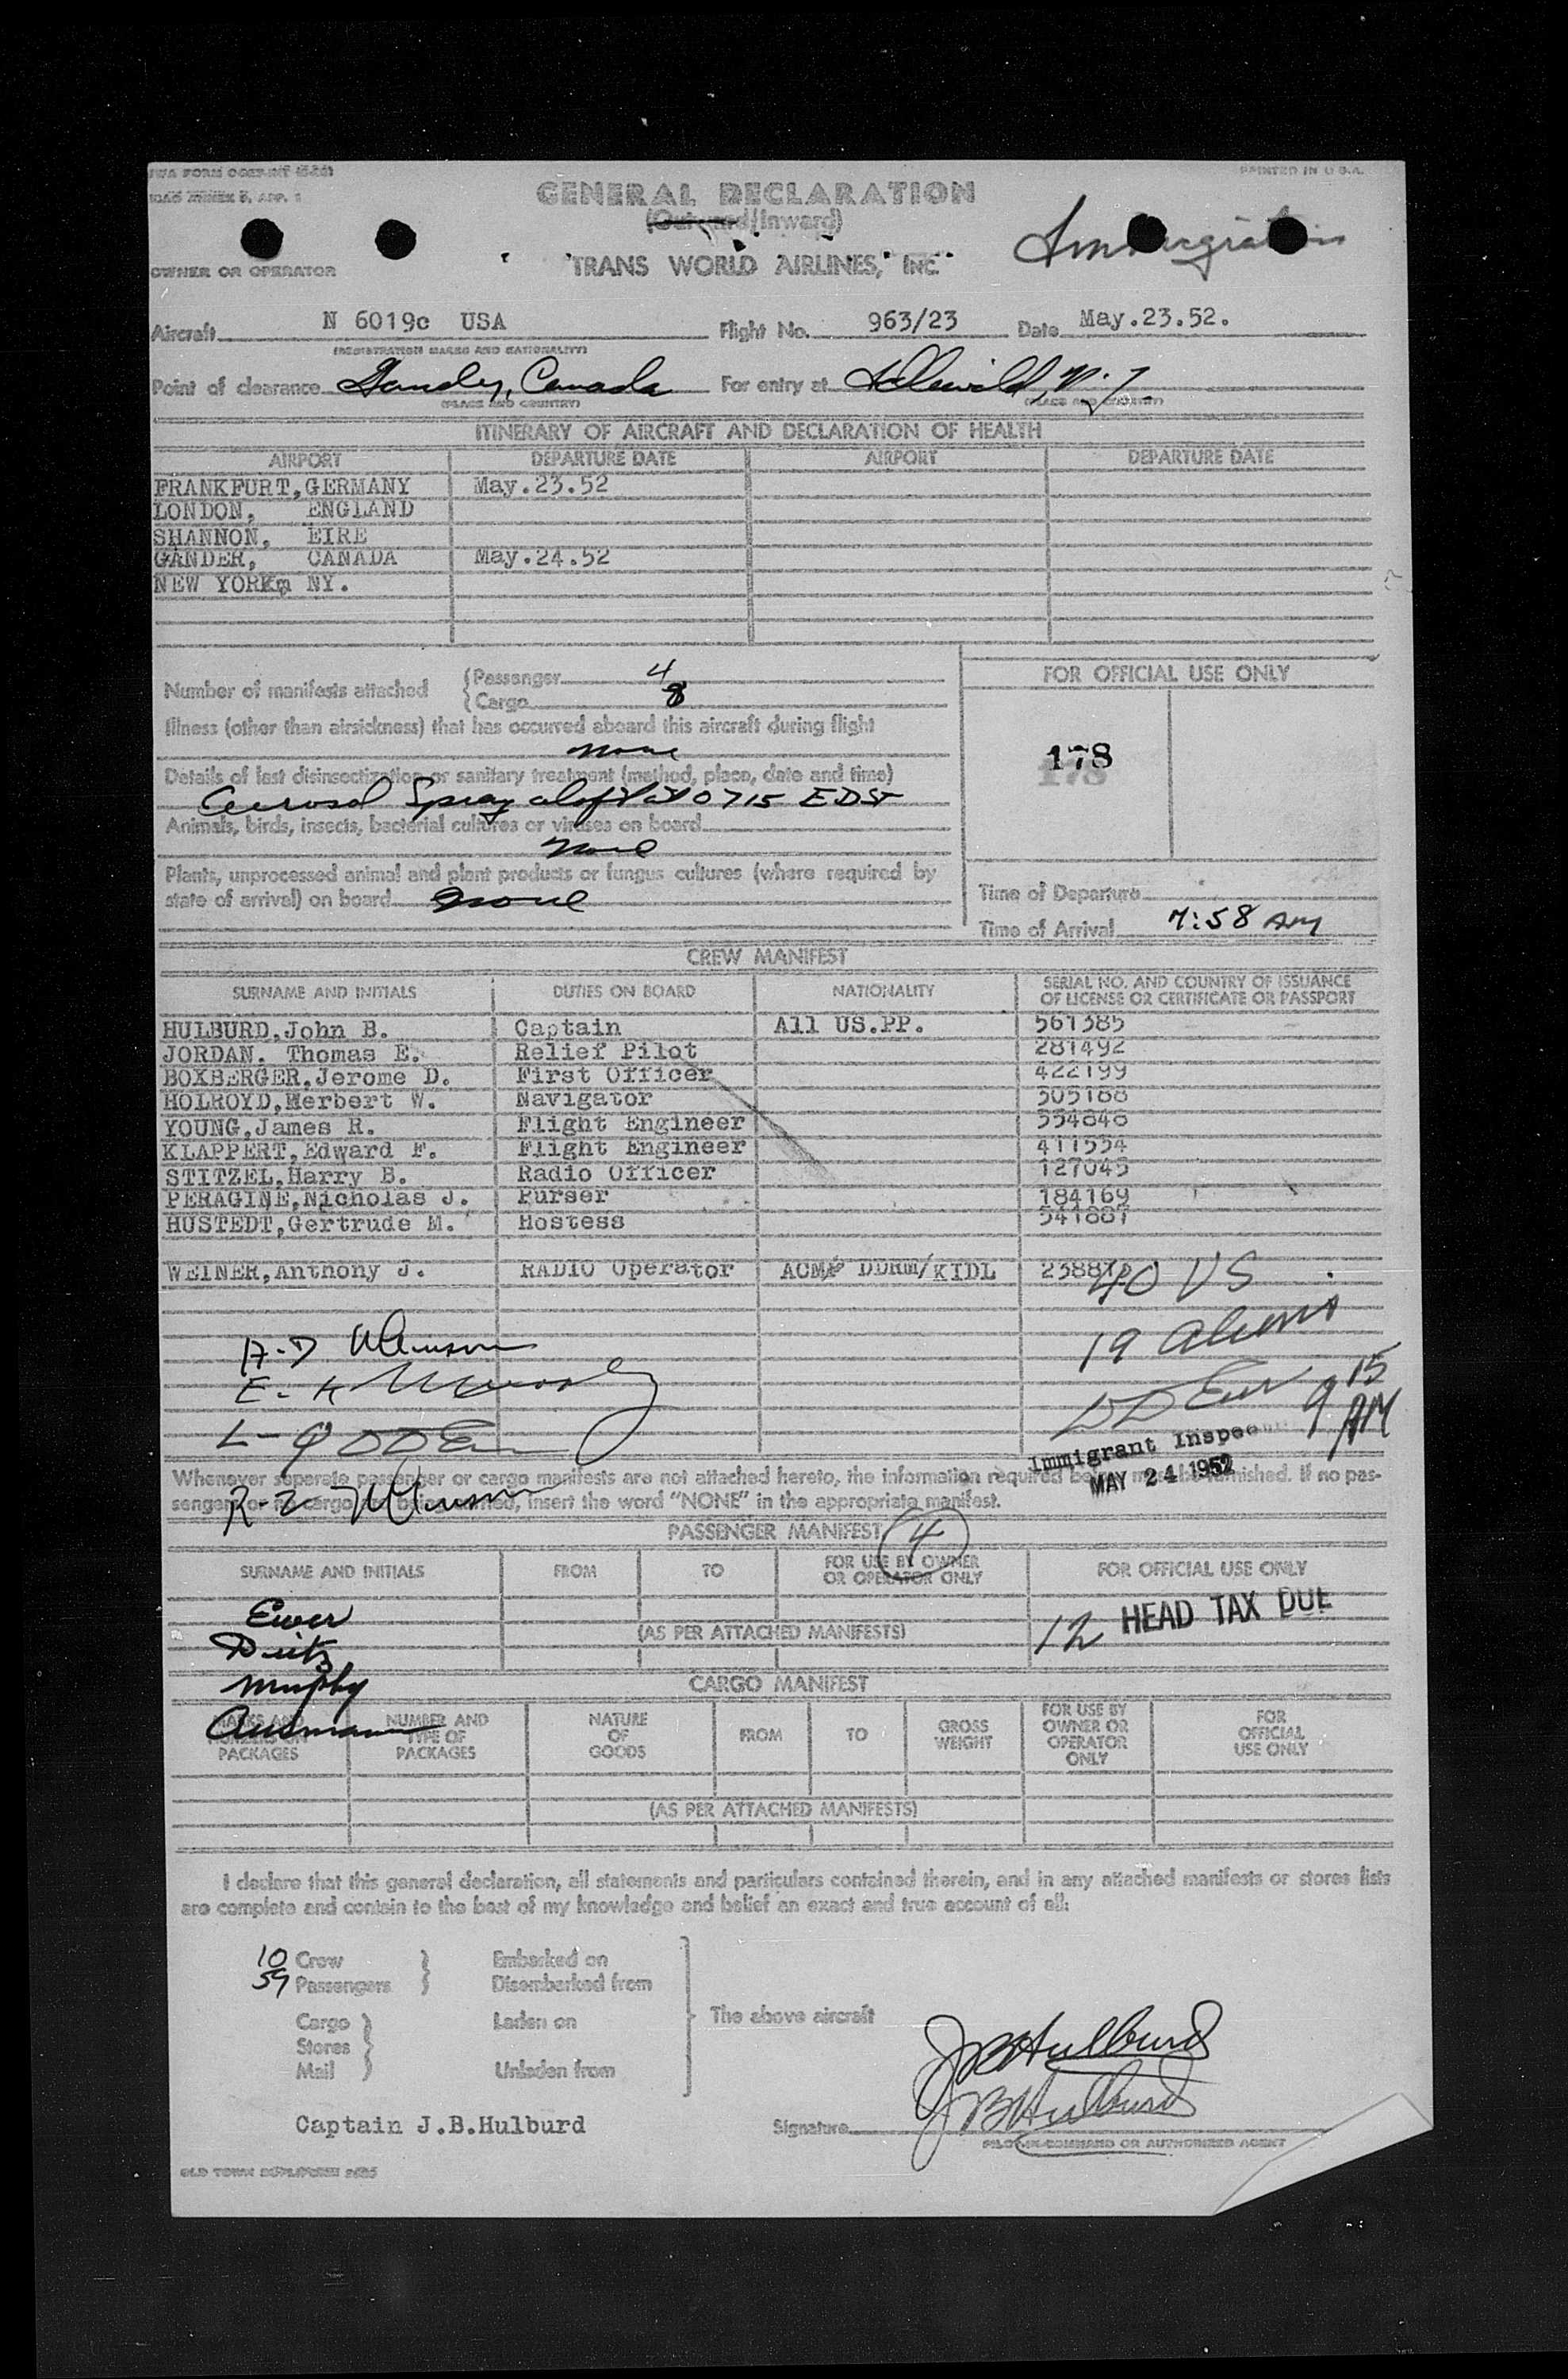 PRINTED IN U.S.A.
GENERAL DECLARATION
(Outward/Inward)
Immigration
OWNER OR OPERATOR TRANS WORLD AIRLINES, INC
Aircraft N 6019c USA Flight No. 963/23 Date May.23.52.
(REGISTRATION MARKS AND NATIONALITY)
Point of clearance Gander, Canada For entry at Idlewild, N.Y.
(PLACE AND COUNTRY) (PLACE AND COUNTRY)
ITINERARY OF AIRCRAFT AND DECLARATION OF HEALTH
AIRPORT DEPARTURE DATE AIRPORT DEPARTURE DATE
FRANKFURT,GERMANY May.23.52
LONDON, ENGLAND
SHANNON, EIRE
GANDER, CANADA May.24.52
NEW YORK NY.
Number of manifests attached
Passenger 4
Cargo 8
FOR OFFICIAL USE ONLY
Illness (other than airsickness) that has occurred aboard this aircraft during flight
none
178
Details of last disinsectization or sanitary treatment (method, place, date and time)
Aerosol Spray aloft at 0715 EDST
Animals, birds, insects, bacterial cultures or viruses on board
none
Plants, unprocessed animal and plant products or fungus cultures (where required by
state of arrival) on board none
Time of Departure
Time of Arrival 7:58 AM
CREW MANIFEST
SURNAME AND INITIALS DUTIES ON BOARD NATIONALITY SERIAL NO. AND COUNTRY OF ISSUANCE
OF LICENSE OR CERTIFICATE OR PASSPORT
HULBURD,John B. Captain All US.PP. 561385
JORDAN. Thomas E. Relief Pilot 281492
BOXBERGER,Jerome D. First Officer 422199
HOLROYD,Herbert W. Navigator 305188
YOUNG,James R. Flight Engineer
KLAPPERT,Edward F. Flight Engineer 411534
STITZEL,Harry B. Radio Officer 127045
PERAGINE,Nicholas J. Purser 184169
HUSTEDT,Gertrude M. Hostess 541881
WEINER,Anthony J. RADIO Operator ACMP DDRM/KIDL
40 US
19 aliens
A-D
E-K Murphy
L-Q
9 15 AM
Immigrant Inspector
MAY 24 1952
Whenever separate passenger or cargo manifests are not attached hereto, the information required below must be furnished. If no pas-
sengers or cargo are being carried, insert the word "NONE" in the appropriate manifest.
R-Z
PASSENGER MANIFEST 4
SURNAME AND INITIALS FROM TO FOR USE BY OWNER
OR OPERATOR ONLY FOR OFFICIAL USE ONLY
Ewer
(AS PER ATTACHED MANIFESTS)
12 HEAD TAX DUE
Dietz
Murphy
CARGO MANIFEST
Ausmann
MARKS AND
NUMBERS ON
PACKAGES
NUMBER AND
TYPE OF
PACKAGES
NATURE
OF
GOODS
FROM
TO
GROSS
WEIGHT
FOR USE BY
OWNER OR
OPERATOR
ONLY
FOR
OFFICIAL
USE ONLY
(AS PER ATTACHED MANIFESTS)
I declare that this general declaration, all statements and particulars contained therein, and in any attached manifests or stores lists
are complete and contain to the best of my knowledge and belief an exact and true account of all:
10 Crew Embarked on
59 Passengers Disembarked from
Cargo Laden on The above aircraft
Stores
Mail Unladen from
JBHulburd
JBHulburd
Captain J.B.Hulburd Signature
PILOT-IN-COMMAND OR AUTHORIZED AGENT